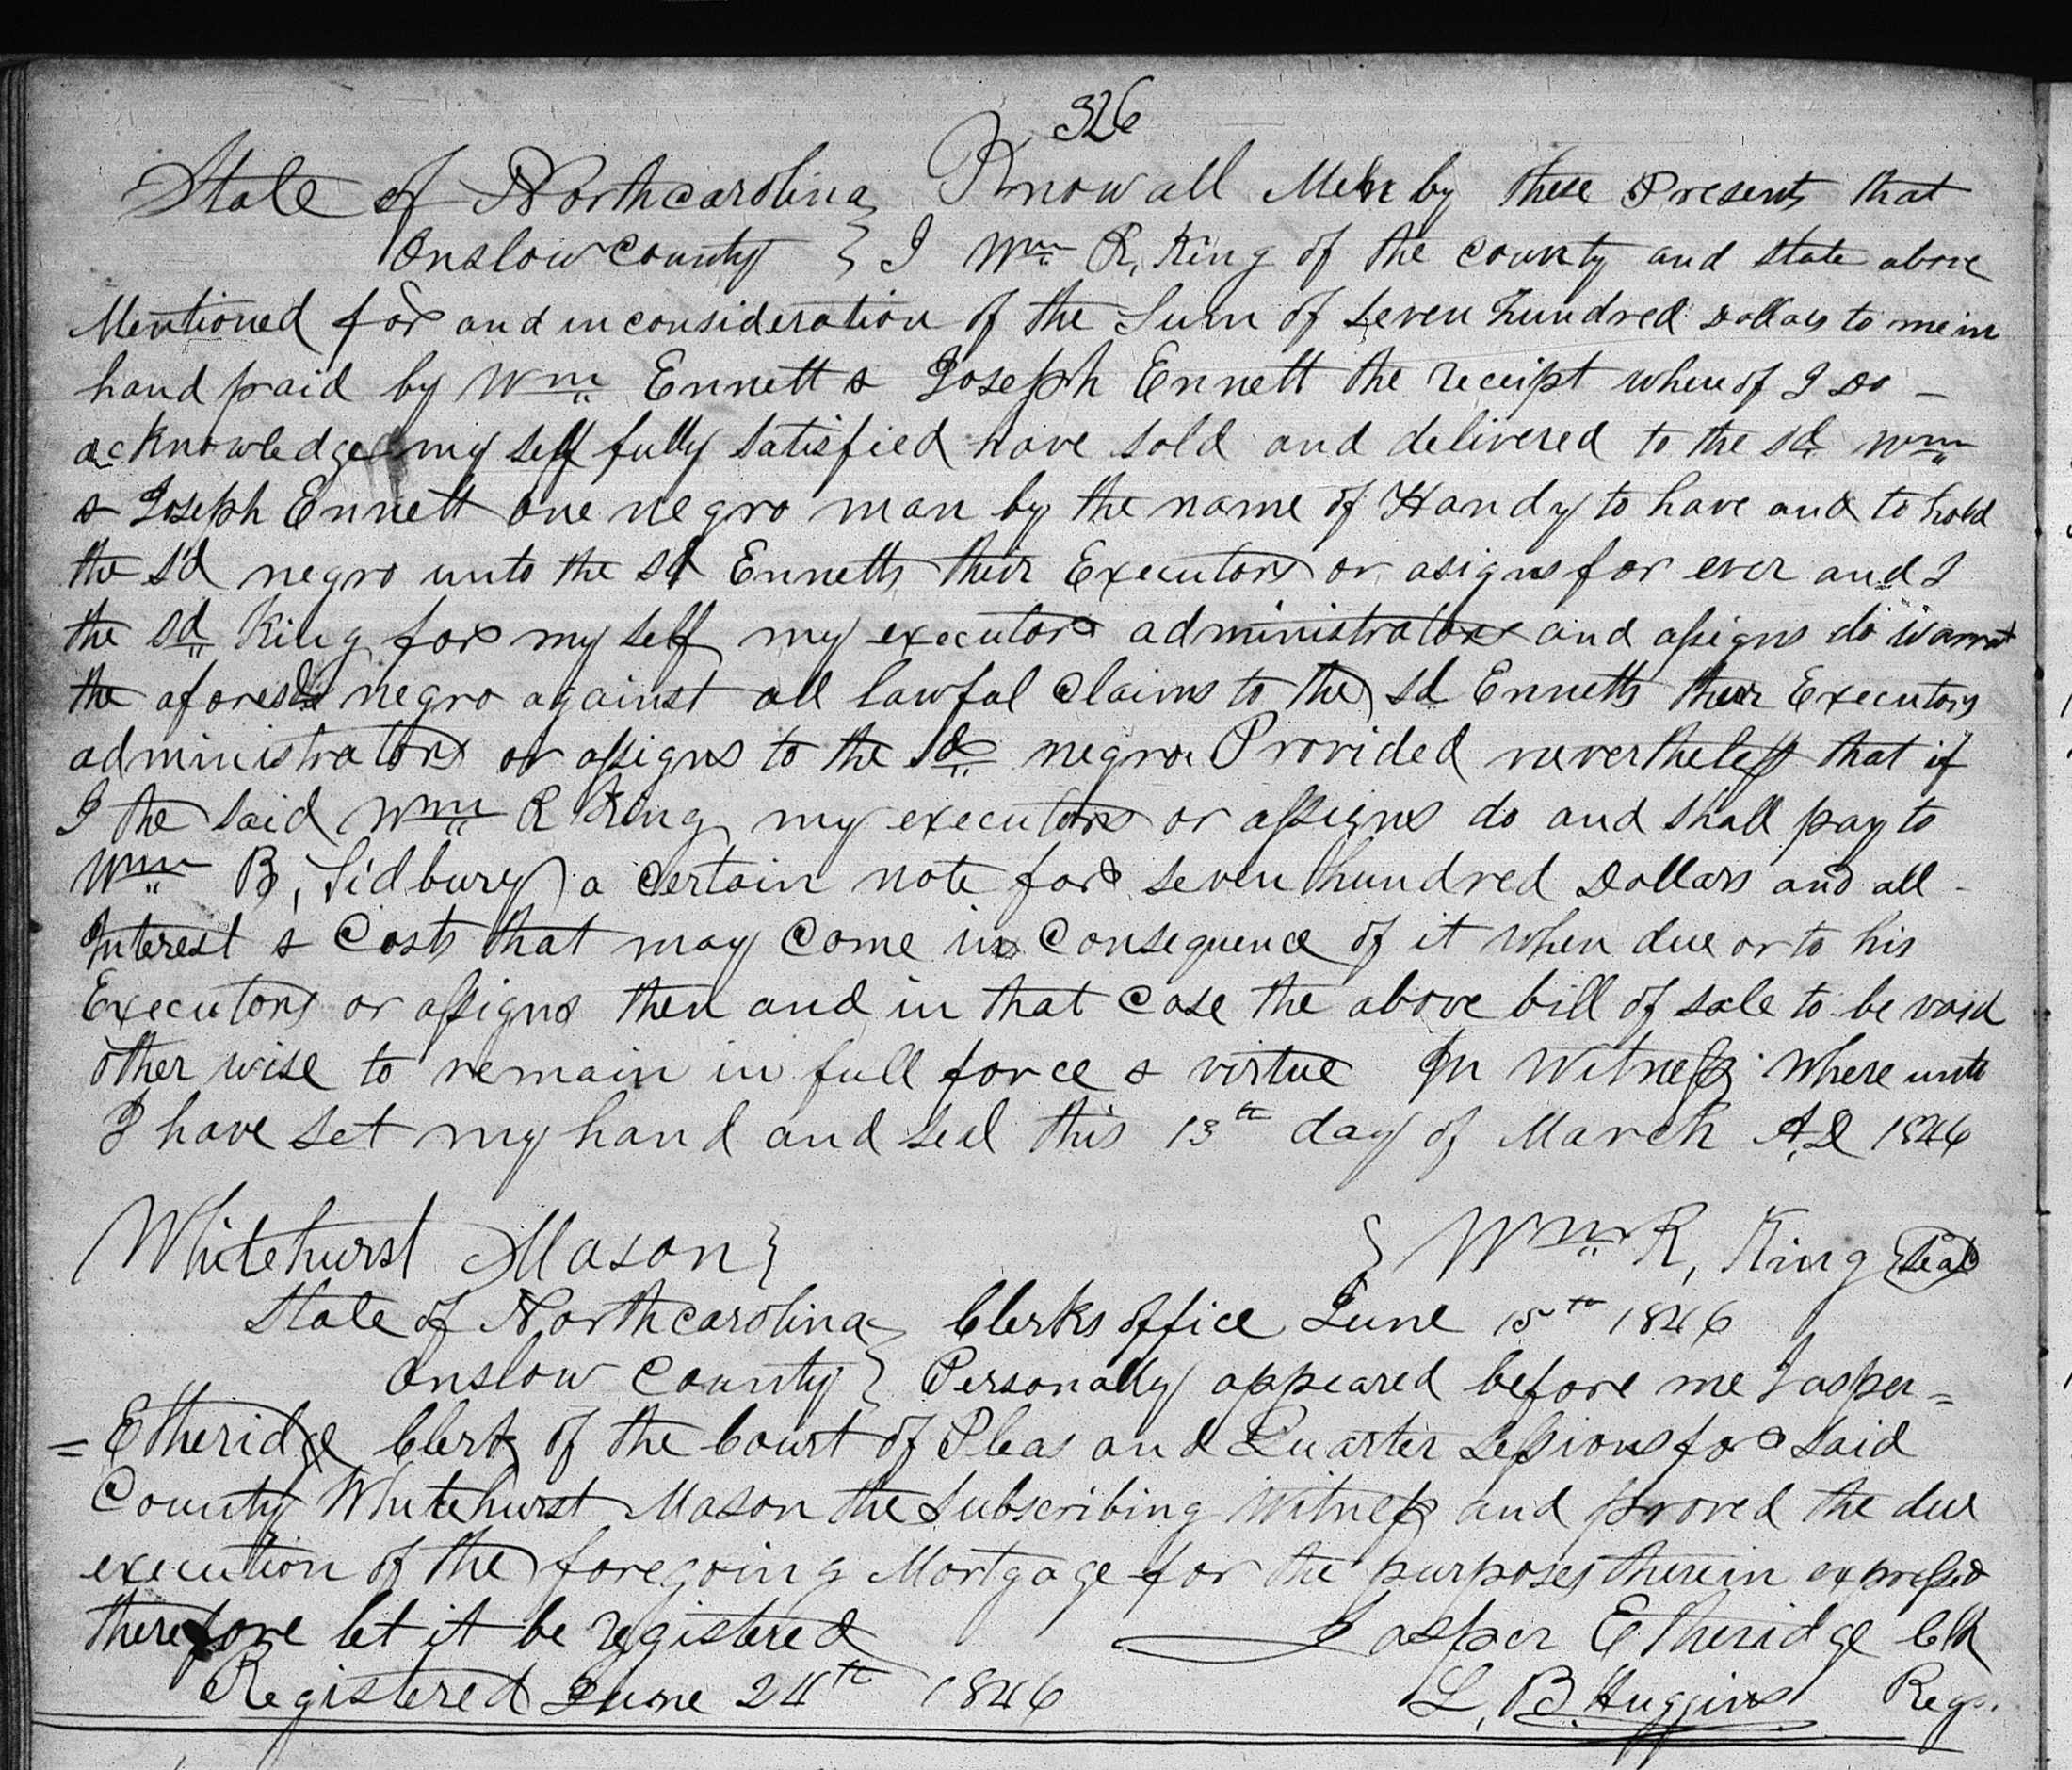 326
State of Northcarolina } Know all Men by these Presents that
Onslow County } I Wm R, King of the county and state above
Mentioned for and in consideration of the Sum of Seven hundred Dollars to me in
hand paid by Wm Ennett & Joseph Ennett the receipt whereof I Do –
acknowledge my self fully satisfied have sold and delivered to the sd Wm
& Joseph Ennett one negro man by the name of Handy to have and to hold
the s'd negro unto the sd Ennetts their Executors or asigns for ever and I
the sd King for my self my executors administrators and assigns do warrnt
the aforesd negro against all lawful Claims to the sd Ennetts their Executors
administrators or assigns to the sd negro. Provided nevertheless that if
I the said Wm R King my executors or assigns do and shall pay to
Wm B, Sidbury a certain note for seven hundred Dollars and all –
Interest & Costs that may Come in Consequence of it when due or to his
Executors or assigns then and in that Case the above bill of sale to be void
other wise to remain in full force & virtue In Witness where unto
I have set my hand and seal this 13th day of March A,D 1846
Whitehurst Mason } { Wm R, King (seal)
State of Northcarolina } Clerks office June 15th 1846
Onslow County } Personally appeared before me Jasper =
= Etheridge Clerk of the Court of Pleas and Quarter Sessions for said
County Whitehurst Mason the Subscribing Witness and proved the due
execution of the foregoing Mortgage for the purposes therein expressed
therefore let it be registered Jasper Etheridge Clk
Registered June 24th 1846 L, B. Huggins Regr.